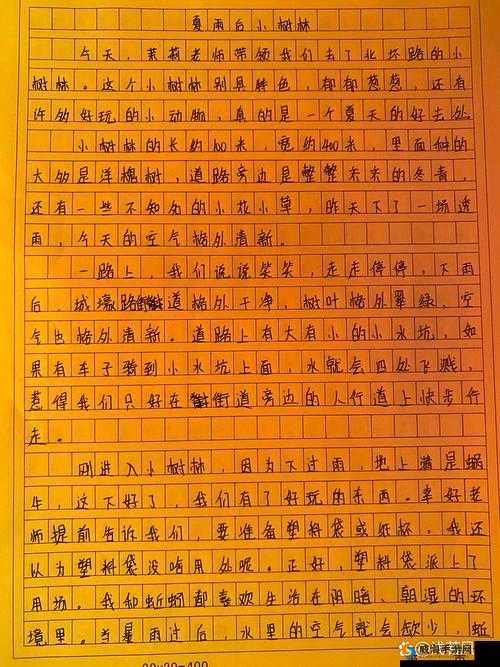 夏雨后小树林
今天，茉莉老师带领我们去了北环路的小
树林。这个小树林别具特色，郁郁葱葱，还有
许多好玩的小动物，真的是一个夏天的好去处
小树林的长约100米，宽约400米，里面种的
大多是洋槐树，道路旁边是整整齐齐的冬青，
还有一些不知名的小花小草，昨天下了一场透
雨，今天的空气格外清新。
一路上，我们说说笑笑，走走停停，下雨
后，城壕路街道格外干净，树叶格外翠绿，空
气也格外清新。道路上有大有小的小水坑，如
果有车子骑到小水坑上面，水就会四处飞溅，
惹得我们只好在街道旁边的人行道上快步行
走。
刚进入小树林，因为下过雨，地上满是蜗
牛，这下好了，我们有了好玩的东西。幸好老
师提前告诉我们，要准备塑料袋或纸杯。我还
以为塑料袋没啥用处呢。正好，塑料袋派上了
用场。我和蚯蚓都喜欢生活在阴暗、潮湿的环
境里。当暴雨过后，水里的空气就会缺少，蚯
20×20=400
威海手游网